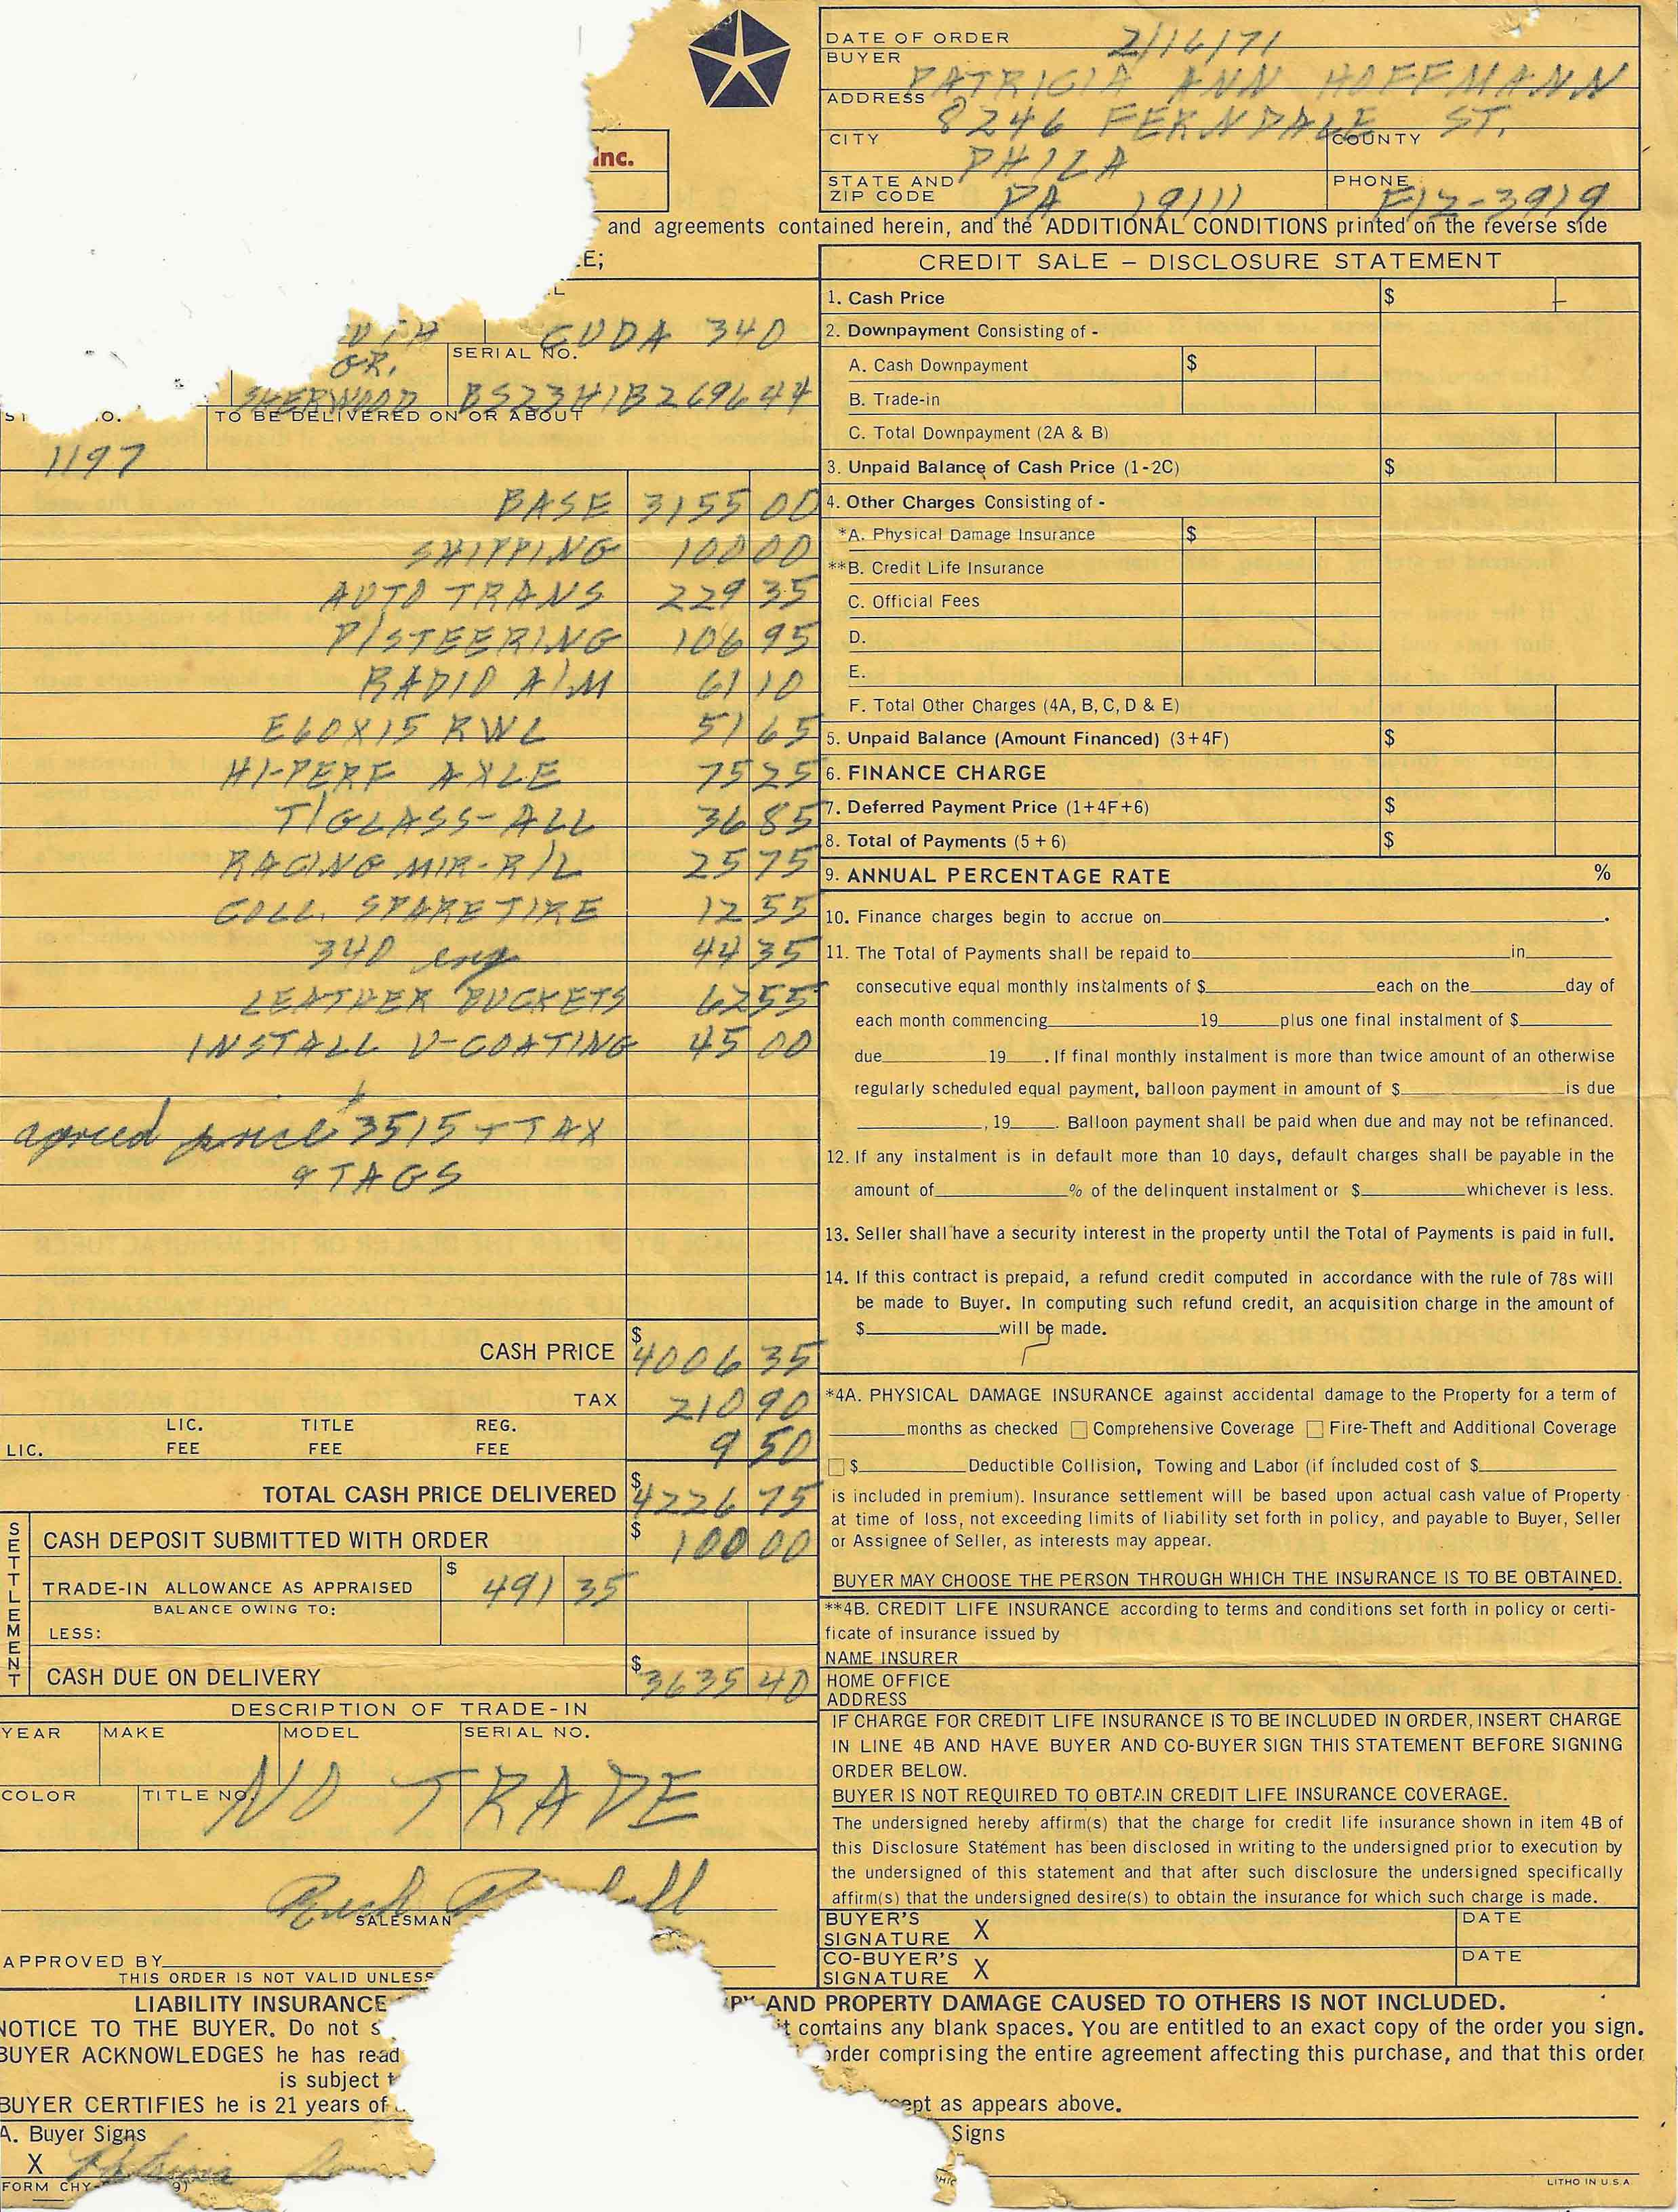 DATE OF ORDER 2/16/71
BUYER PATRICIA ANN HOFFMANN
ADDRESS 8246 FERNDALE ST.
CITY PHILA COUNTY
STATE AND ZIP CODE PA 19111 PHONE
Inc.
and agreements contained herein, and the ADDITIONAL CONDITIONS printed on the reverse side
E;
CUDA 340
SERIAL NO.
GR.
SHERWOOD BS23H1B269644
O. TO BE DELIVERED ON OR ABOUT
1197
BASE 3155 00
SHIPPING 100 00
AUTO TRANS 229 35
P/STEERING 106 95
RADIO A/M 61 10
E60X15 RWL 51 65
HI-PERF AXLE 75 25
T/GLASS-ALL 36 85
RACING MIR-R/L 25 75
COLL. SPARE TIRE 12 55
340 eng 44 35
LEATHER BUCKETS 62 55
INSTALL V-COATING 45 00
agreed price 3515 + TAX
& TAGS
CASH PRICE $ 4006 35
TAX 210 90
LIC. TITLE REG.
LIC. FEE FEE FEE 9 50
TOTAL CASH PRICE DELIVERED $ 4226 75
SETTLEMENT
CASH DEPOSIT SUBMITTED WITH ORDER $ 100 00
TRADE-IN ALLOWANCE AS APPRAISED $ 491 35
BALANCE OWING TO:
LESS:
CASH DUE ON DELIVERY $ 3635 40
DESCRIPTION OF TRADE-IN
YEAR MAKE MODEL SERIAL NO.
NO TRADE
COLOR TITLE NO.
SALESMAN
APPROVED BY
THIS ORDER IS NOT VALID UNLESS
CREDIT SALE – DISCLOSURE STATEMENT
1. Cash Price $
2. Downpayment Consisting of -
A. Cash Downpayment $
B. Trade-in
C. Total Downpayment (2A & B)
3. Unpaid Balance of Cash Price (1-2C) $
4. Other Charges Consisting of -
*A. Physical Damage Insurance $
**B. Credit Life Insurance
C. Official Fees
D.
E.
F. Total Other Charges (4A, B, C, D & E)
5. Unpaid Balance (Amount Financed) (3+4F) $
6. FINANCE CHARGE
7. Deferred Payment Price (1+4F+6) $
8. Total of Payments (5 + 6) $
9. ANNUAL PERCENTAGE RATE %
10. Finance charges begin to accrue on .
11. The Total of Payments shall be repaid to in
consecutive equal monthly instalments of $ each on the day of
each month commencing 19 plus one final instalment of $
due 19 . If final monthly instalment is more than twice amount of an otherwise
regularly scheduled equal payment, balloon payment in amount of $ is due
, 19 . Balloon payment shall be paid when due and may not be refinanced.
12. If any instalment is in default more than 10 days, default charges shall be payable in the
amount of % of the delinquent instalment or $ whichever is less.
13. Seller shall have a security interest in the property until the Total of Payments is paid in full.
14. If this contract is prepaid, a refund credit computed in accordance with the rule of 78s will
be made to Buyer. In computing such refund credit, an acquisition charge in the amount of
$ will be made.
*4A. PHYSICAL DAMAGE INSURANCE against accidental damage to the Property for a term of
months as checked Comprehensive Coverage Fire-Theft and Additional Coverage
$ Deductible Collision, Towing and Labor (if included cost of $
is included in premium). Insurance settlement will be based upon actual cash value of Property
at time of loss, not exceeding limits of liability set forth in policy, and payable to Buyer, Seller
or Assignee of Seller, as interests may appear.
BUYER MAY CHOOSE THE PERSON THROUGH WHICH THE INSURANCE IS TO BE OBTAINED.
**4B. CREDIT LIFE INSURANCE according to terms and conditions set forth in policy or certi-
ficate of insurance issued by
NAME INSURER
HOME OFFICE
ADDRESS
IF CHARGE FOR CREDIT LIFE INSURANCE IS TO BE INCLUDED IN ORDER, INSERT CHARGE
IN LINE 4B AND HAVE BUYER AND CO-BUYER SIGN THIS STATEMENT BEFORE SIGNING
ORDER BELOW.
BUYER IS NOT REQUIRED TO OBTAIN CREDIT LIFE INSURANCE COVERAGE.
The undersigned hereby affirm(s) that the charge for credit life insurance shown in item 4B of
this Disclosure Statement has been disclosed in writing to the undersigned prior to execution by
the undersigned of this statement and that after such disclosure the undersigned specifically
affirm(s) that the undersigned desire(s) to obtain the insurance for which such charge is made.
BUYER'S SIGNATURE X DATE
CO-BUYER'S SIGNATURE X DATE
LIABILITY INSURANCE AND PROPERTY DAMAGE CAUSED TO OTHERS IS NOT INCLUDED.
NOTICE TO THE BUYER. Do not s t contains any blank spaces. You are entitled to an exact copy of the order you sign.
BUYER ACKNOWLEDGES he has read order comprising the entire agreement affecting this purchase, and that this order
is subject t
BUYER CERTIFIES he is 21 years of cept as appears above.
A. Buyer Signs Signs
X Patricia
FORM CHY- 9) LITHO IN U.S.A